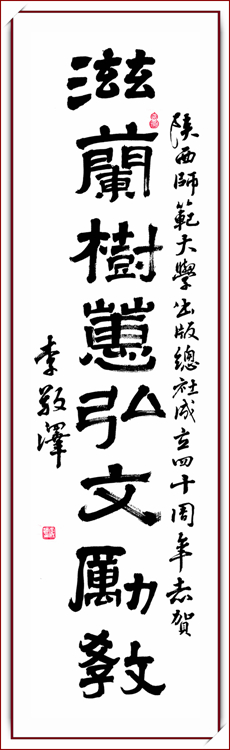 陝西師範大學出版總社成立四十周年志賀
滋蘭樹蕙弘文勵教
李敬澤